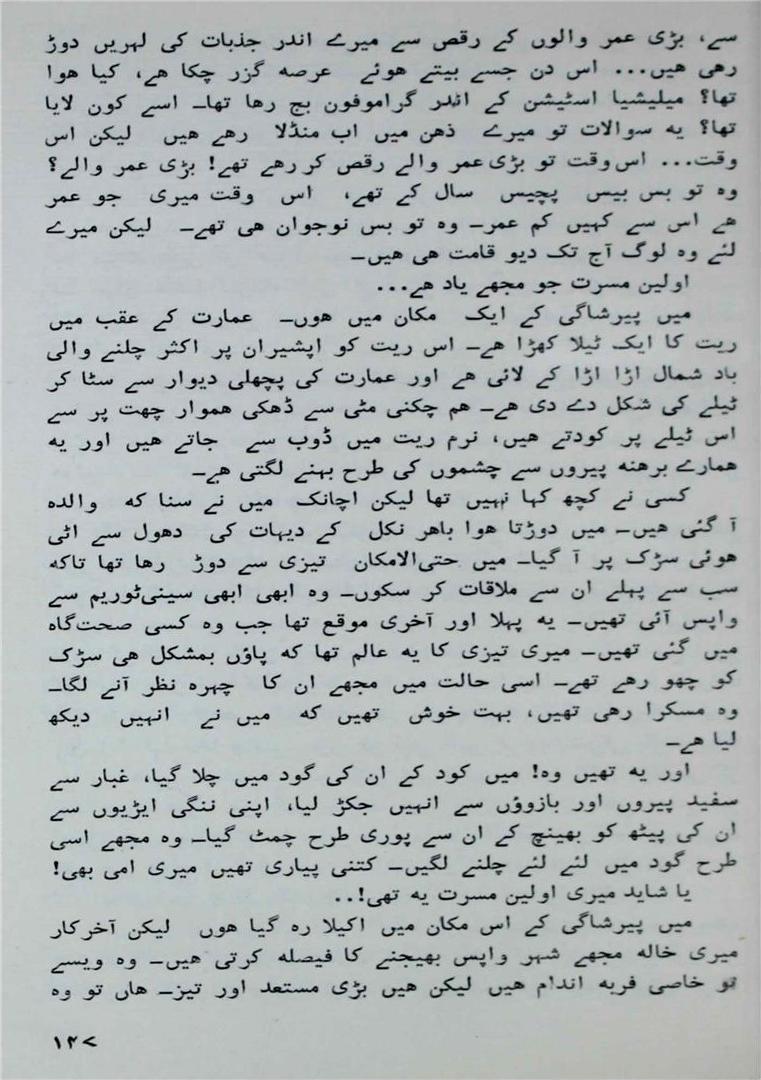 سے، بڑی عمر والوں کے رقص سے میرے اندر جذبات کی لہریں دوڑ
رہی ہیں... اس دن جسے بیتے ہوئے عرصہ گزر چکا ہے، کیا ہوا
تھا؟ میلیشیا اسٹیشن کے اندر گراموفون بج رہا تھا۔ اسے کون لایا
تھا؟ یہ سوالات تو میرے ذہن میں اب منڈلا رہے ہیں لیکن اس
وقت... اس وقت تو بڑی عمر والے رقص کر رہے تھے! بڑی عمر والے؟
وہ تو بس بیس پچیس سال کے تھے، اس وقت میری جو عمر
ہے اس سے کہیں کم عمر۔ وہ تو بس نوجوان ہی تھے۔ لیکن میرے
لئے وہ لوگ آج تک دیو قامت ہی ہیں۔
اولین مسرت جو مجھے یاد ہے...
میں پیرشاگی کے ایک مکان میں ہوں۔ عمارت کے عقب میں
ریت کا ایک ٹیلا کھڑا ہے۔ اس ریت کو اپشیران پر اکثر چلنے والی
باد شمال اڑا اڑا کے لائی ہے اور عمارت کی پچھلی دیوار سے سٹا کر
ٹیلے کی شکل دے دی ہے۔ ہم چکنی مٹی سے ڈھکی ہموار چھت پر سے
اس ٹیلے پر کودتے ہیں، نرم ریت میں ڈوب سے جاتے ہیں اور یہ
ہمارے برہنہ پیروں سے چشموں کی طرح بہنے لگتی ہے۔
کسی نے کچھ کہا نہیں تھا لیکن اچانک میں نے سنا کہ والدہ
آ گئی ہیں۔ میں دوڑتا ہوا باہر نکل کے دیہات کی دھول سے اٹی
ہوئی سڑک پر آ گیا۔ میں حتی‌الامکان تیزی سے دوڑ رہا تھا تاکہ
سب سے پہلے ان سے ملاقات کر سکوں۔ وہ ابھی ابھی سینی‌ٹوریم سے
واپس آئی تھیں۔ یہ پہلا اور آخری موقع تھا جب وہ کسی صحت‌گاہ
میں گئی تھیں۔ میری تیزی کا یہ عالم تھا کہ پاؤں بمشکل ہی سڑک
کو چھو رہے تھے۔ اسی حالت میں مجھے ان کا چہرہ نظر آنے لگا۔
وہ مسکرا رہی تھیں، بہت خوش تھیں کہ میں نے انہیں دیکھ
لیا ہے۔
اور یہ تھیں وہ! میں کود کے ان کی گود میں چلا گیا، غبار سے
سفید پیروں اور بازوؤں سے انہیں جکڑ لیا، اپنی ننگی ایڑیوں سے
ان کی پیٹھ کو بھینچ کے ان سے پوری طرح چمٹ گیا۔ وہ مجھے اسی
طرح گود میں لئے لئے چلنے لگیں۔ کتنی پیاری تھیں میری امی بھی!
یا شاید میری اولین مسرت یہ تھی!..
میں پیرشاگی کے اس مکان میں اکیلا رہ گیا ہوں لیکن آخرکار
میری خالہ مجھے شہر واپس بھیجنے کا فیصلہ کرتی ہیں۔ وہ ویسے
تو خاصی فربہ اندام ہیں لیکن ہیں بڑی مستعد اور تیز۔ ہاں تو وہ
۱۲۷